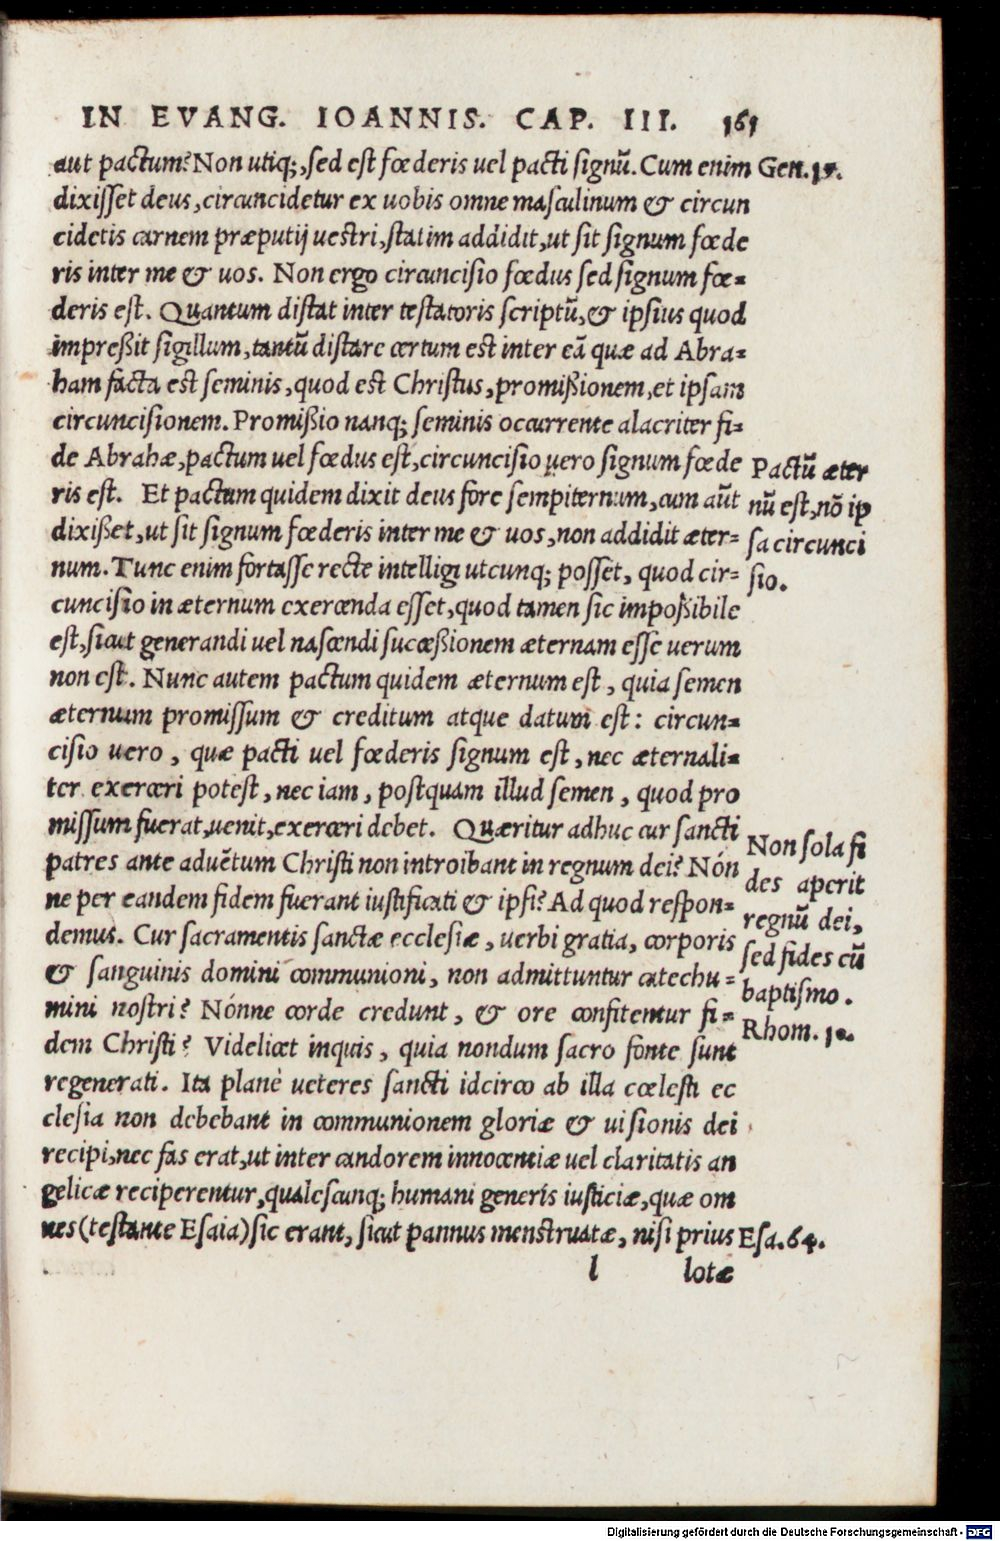 IN EVANG. IOANNIS. CAP. III. 161
aut pactum? Non utiq;, sed est fœderis uel pacti signũ. Cum enim Gen. 17.
dixisset deus, circuncidetur ex uobis omne masculinum & circun
cidetis carnem præputij uestri, statim addidit, ut sit signum fœde
ris inter me & uos. Non ergo circuncisio fœdus sed signum fœ-
deris est. Quantum distat inter testatoris scriptũ, & ipsius quod
impreßit sigillum, tantũ distare certum est inter eã quæ ad Abra-
ham facta est seminis, quod est Christus, promißionem, et ipsam
circuncisionem. Promißio nanq; seminis occurrente alacriter fi-
de Abrahæ, pactum uel fœdus est, circuncisio uero signum fœde
ris est. Et pactum quidem dixit deus fore sempiternum, cum aũt
dixißet, ut sit signum fœderis inter me & uos, non addidit æter-
num. Tunc enim fortasse recte intelligi utcunq; posset, quod cir-
cuncisio in æternum exercenda esset, quod tamen sic impoßibile
est, sicut generandi uel nascendi succeßionem æternam esse uerum
non est. Nunc autem pactum quidem æternum est, quia semen
æternum promissum & creditum atque datum est: circun-
cisio uero, quæ pacti uel fœderis signum est, nec æternali-
ter exerceri potest, nec iam, postquam illud semen, quod pro
missum fuerat, uenit, exerceri debet. Quæritur adhuc cur sancti
patres ante aduẽtum Christi non introibant in regnum dei? Nón
ne per eandem fidem fuerant iustificati & ipsi? Ad quod respon-
demus. Cur sacramentis sanctæ ecclesiæ, uerbi gratia, corporis
& sanguinis domini communioni, non admittuntur catechu-
mini nostri? Nónne corde credunt, & ore confitentur fi-
dem Christi? Videlicet inquis, quia nondum sacro fonte sunt
regenerati. Ita planè ueteres sancti idcirco ab illa cœlesti ec
clesia non debebant in communionem gloriæ & uisionis dei
recipi, nec fas erat, ut inter candorem innocentiæ uel claritatis an
gelicæ reciperentur, qualescunq; humani generis iusticiæ, quæ om
nes (testante Esaia) sic erant, sicut pannus menstruatæ, nisi prius Esa. 64.
l lotæ
Pactũ æter
nũ est, nõ ip
sa circunci
sio.
Non sola fi
des aperit
regnũ dei,
sed fides cũ
baptismo.
Rhom. 10.
Digitalisierung gefördert durch die Deutsche Forschungsgemeinschaft - DFG